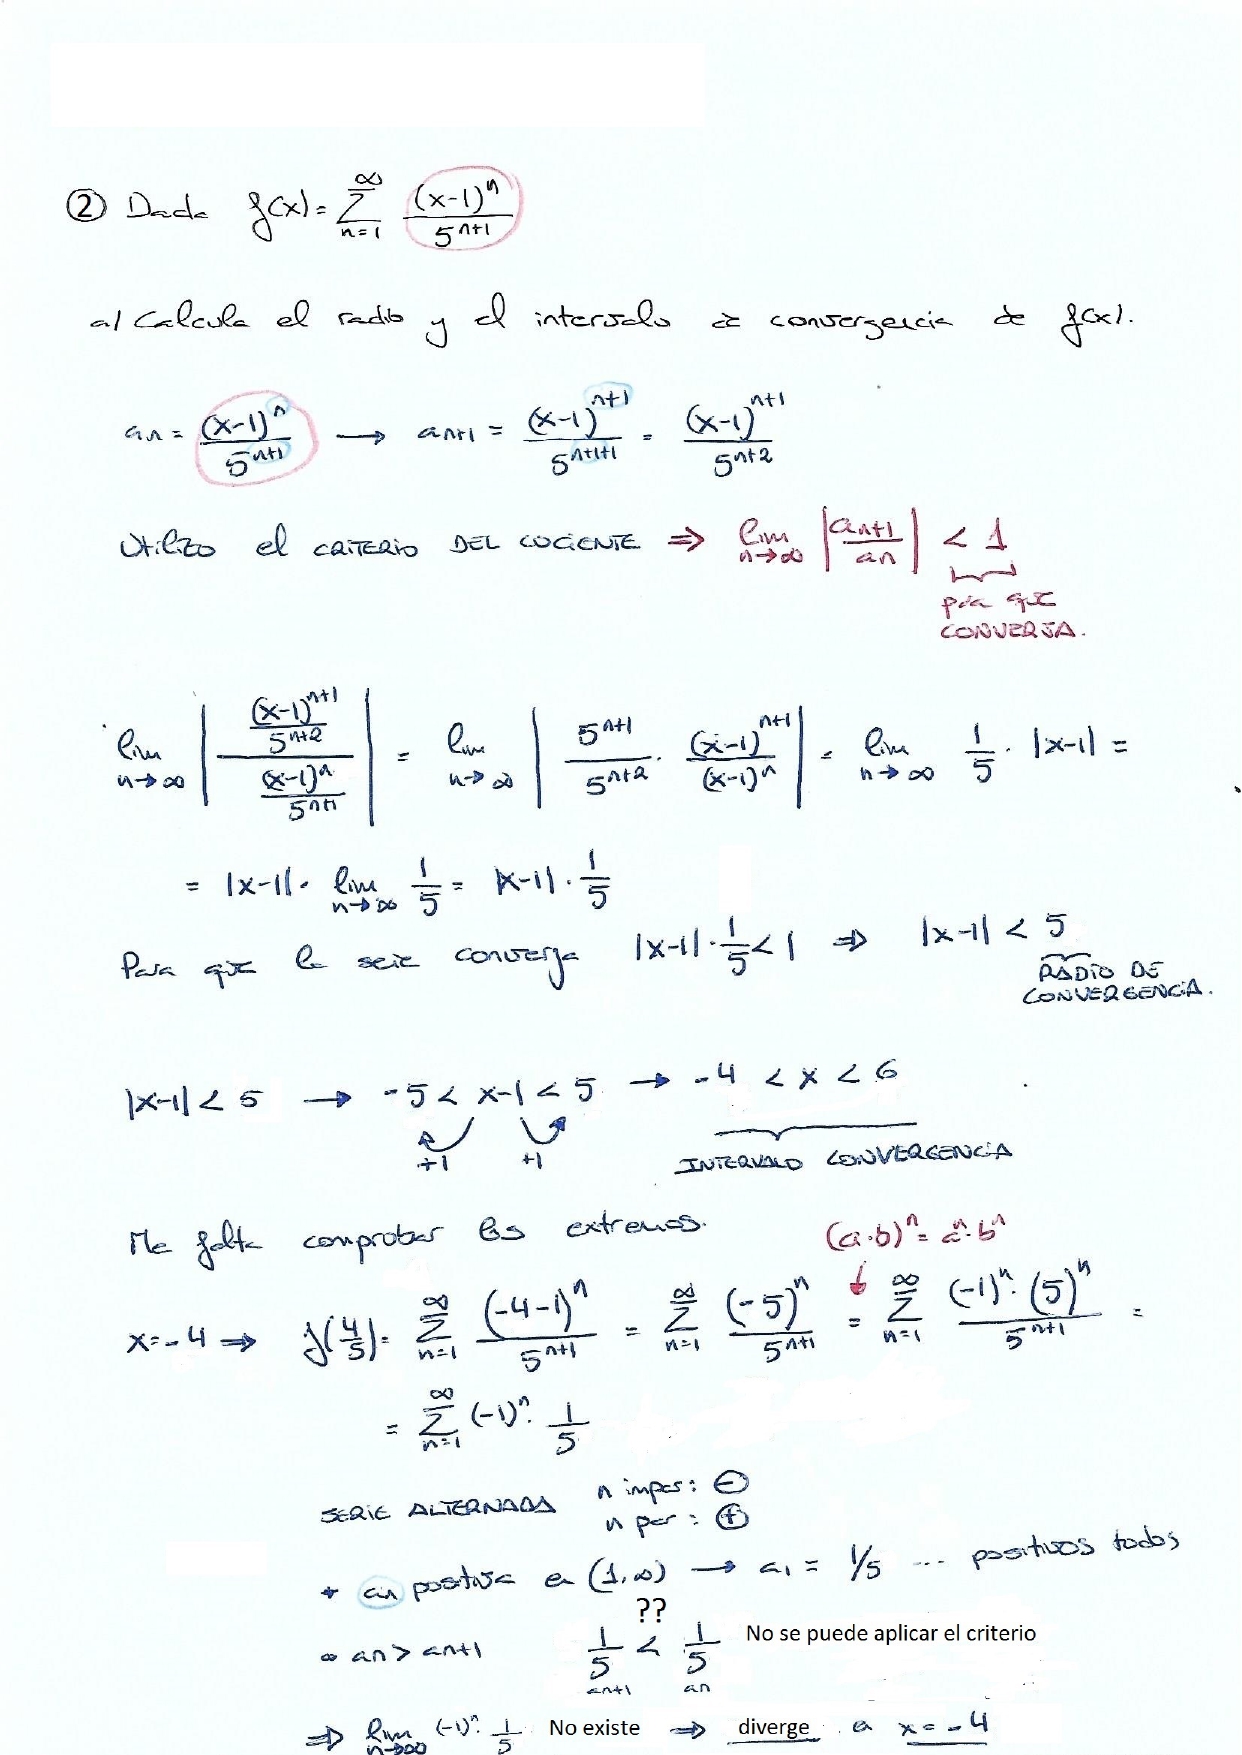 ② Dada f(x) = ∑_{n=1}^{∞} (x-1)^n / 5^{n+1}
a/ Calcula el radio y el intervalo de convergencia de f(x).
an = (x-1)^n / 5^{n+1} → an+1 = (x-1)^{n+1} / 5^{n+1+1} = (x-1)^{n+1} / 5^{n+2}
Utilizo el CRITERIO DEL COCIENTE ⇒ lim_{n→∞} |an+1 / an| < 1
para que
CONVERJA.
lim_{n→∞} | ((x-1)^{n+1} / 5^{n+2}) / ((x-1)^n / 5^{n+1}) | = lim_{n→∞} | 5^{n+1} / 5^{n+2} · (x-1)^{n+1} / (x-1)^n | = lim_{n→∞} 1/5 · |x-1| =
= |x-1| · lim_{n→∞} 1/5 = |x-1| · 1/5
Para que la serie converja |x-1| · 1/5 < 1 ⇒ |x-1| < 5
RADIO DE
CONVERGENCIA.
|x-1| < 5 → -5 < x-1 < 5 → -4 < x < 6
+1 +1 INTERVALO CONVERGENCIA
Me falta comprobar los extremos. (a·b)^n = a^n·b^n
x=-4 ⇒ f(4/5) = ∑_{n=1}^{∞} (-4-1)^n / 5^{n+1} = ∑_{n=1}^{∞} (-5)^n / 5^{n+1} = ∑_{n=1}^{∞} (-1)^n · (5)^n / 5^{n+1} =
= ∑_{n=1}^{∞} (-1)^n · 1/5
SERIE ALTERNADA n impar: ⊖
n par: ⊕
* an positiva en (1,∞) → a1 = 1/5 ... positivos todos
??
∞ an > an+1 1/5 < 1/5 No se puede aplicar el criterio
an+1 an
⇒ lim_{n→∞} (-1)^n · 1/5 No existe ⇒ diverge en x=-4